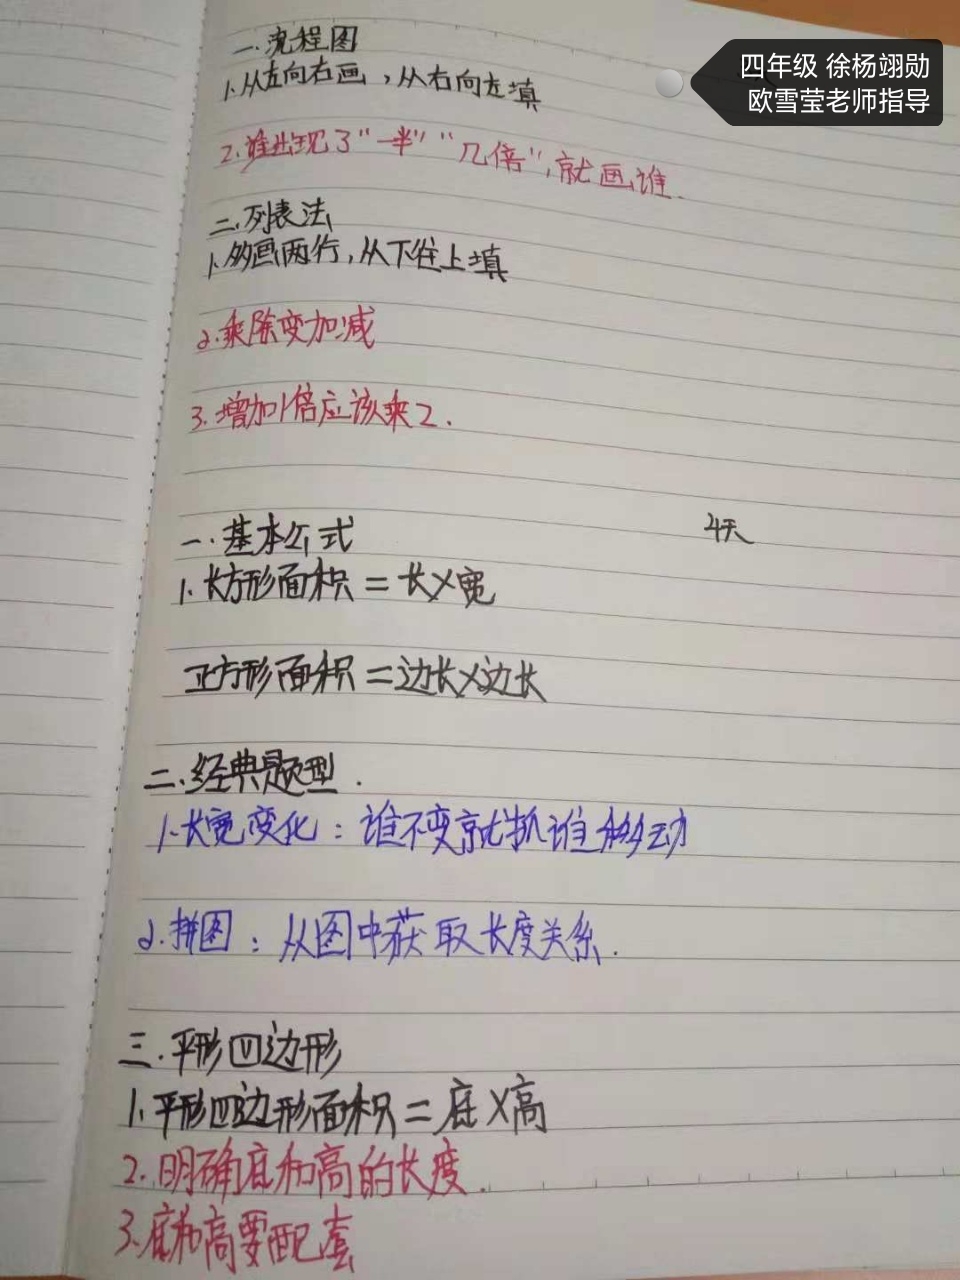 四年级 徐杨翊勋
欧雪莹老师指导
一.流程图
1.从左向右画,从右向左填
2.谁出现了“一半”“几倍”,就画谁.
二.列表法
1.多画两行,从下往上填
2.乘除变加减
3.增加1倍应该乘2.
4天
一.基本公式
1.长方形面积=长×宽
正方形面积=边长×边长
二.经典题型.
1.长宽变化:谁不变就抓谁移动
2.拼图:从图中获取长度关系.
三.平形四边形
1.平形四边形面积=底×高
2.明确底和高的长度.
3.底和高要配套